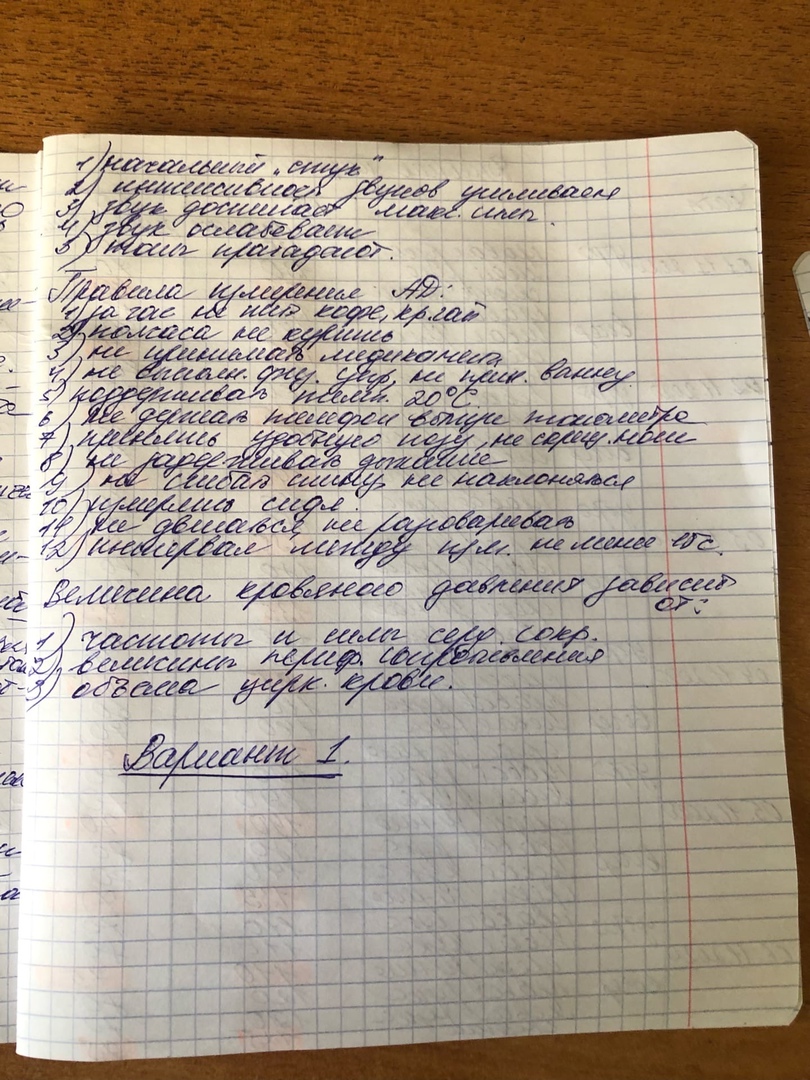 1) начальный „стук"
2) интенсивность звуков усиливается
3) звук достигает макс. силы
4) звук ослабевает
5) тоны пропадают.
Правила измерения АД:
1) за час не пить кофе, кр.чай
2) полчаса не курить
3) не принимать медикамент
4) не выполн. физ. упр, не прин. ванну
5) поддерживать темп. 20°С
6) не держать телефон вблизи тонометра
7) принять удобную позу, не скрещ. ноги
8) не задерживать дыхание
9) не сгибать спину, не наклоняться
10) измерять сидя.
11) не двигаться, не разговаривать
12) интервал между изм. не менее 15с.
Величина кровяного давления зависит
от:
1) частоты и силы серд. сокр.
2) величины периф. сопротивления
3) объёма цирк. крови.
Вариант 1.